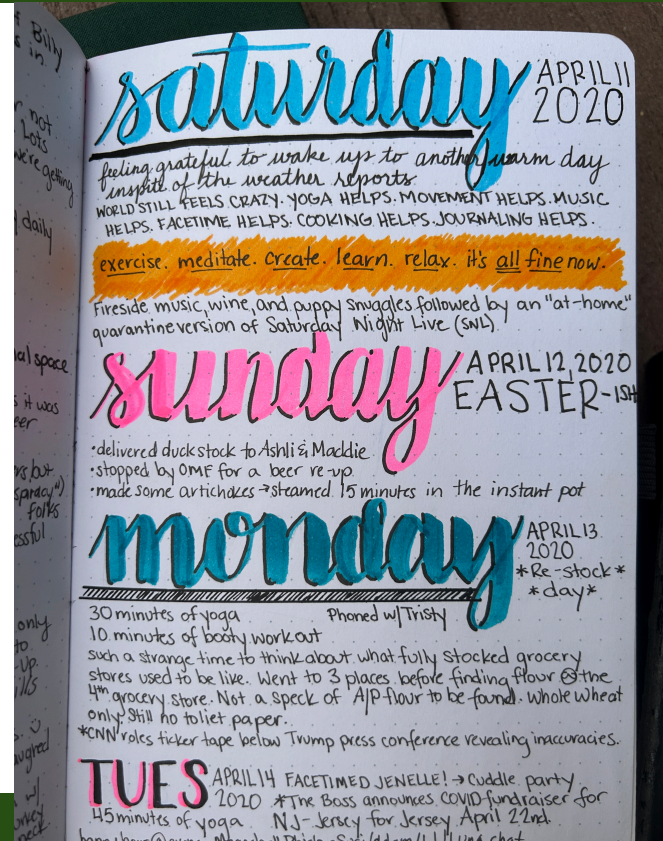 Billy
s in
r not
Lots
we're getting
daily
al space
s it was
eer
rs but
folks
essful
only
to
-up
ills
aughed
w/
saturday
APRIL 11
2020
feeling grateful to wake up to another warm day
inspite of the weather reports.
WORLD STILL FEELS CRAZY. YOGA HELPS. MOVEMENT HELPS. MUSIC
HELPS. FACETIME HELPS. COOKING HELPS. JOURNALING HELPS.
exercise. meditate. create. learn. relax. it's all fine now.
Fireside, music, wine, and puppy snuggles followed by an "at-home"
quarantine version of Saturday Night Live (SNL).
sunday
APRIL 12, 2020
EASTER-ISH
•delivered duck stock to Ashli & Maddie
•stopped by OMF for a beer re-up
•made some artichokes →steamed 15 minutes in the instant pot
monday
APRIL 13
2020
*Re-stock*
*day*
30 minutes of yoga Phoned w/Tristy
10 minutes of booty workout
such a strange time to think about what fully stocked grocery
stores used to be like. Went to 3 places before finding flour @ the
4th grocery store. Not a speck of A/P flour to be found. whole wheat
only. Still no toliet paper.
*CNN roles ticker tape below Trump press conference revealing inaccuracies.
TUES
APRIL 14 FACETIMED JENELLE! → Cuddle party
2020 *The Boss announces COVID fundraiser for
45 minutes of yoga NJ-Jersey for Jersey April 22nd.